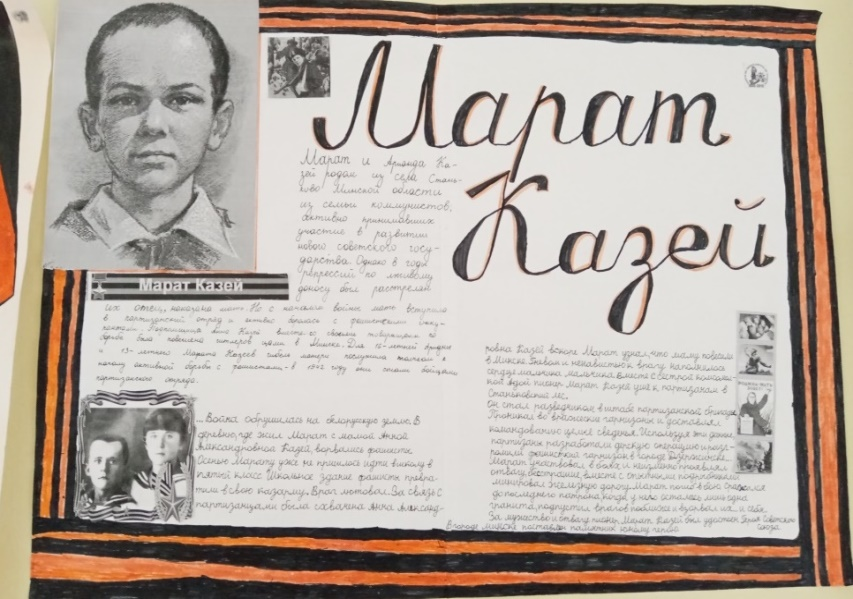 Марат
Казей
Марат и Ариадна Ка-
зей родом из села Стань-
ково Минской области
из семьи коммунистов,
активно принимавших
участие в развитии
нового советского госу-
дарства. Однако в годы
репрессий по лживому
доносу был расстрелян
Марат Казей
их отец, наказана мать. Но с началом войны мать вступила
в партизанский отряд и активно боролась с фашистскими
Анна Казей вместе со своими товарищами по
борьбе была повешена в Минске. Для 16-летней Ариадны
и 13-летнего Марата Казеев гибель матери послужила толчком к
началу активной борьбы с фашистами - в 1942 году они стали бойцами
партизанского отряда.
...Война обрушилась на белорусскую землю. В
деревню, где жил Марат с мамой Анной
Александровной Казей, ворвались фашисты.
Осенью Марату уже не пришлось идти в школу в
пятый класс. Школьное здание фашисты превра-
тили в свою казарму. Враг лютовал. За связь с
партизанами была схвачена Анна Александ-
ровна Казей вскоре Марат узнал, что маму повесили
в Минске. Гневом и ненавистью к врагу наполнилось
сердце мальчика. Вместе с сестрой
Адой пионер Марат Казей ушёл к партизанам в
Станьковский лес.
Он стал разведчиком в штабе партизанской бригады.
Проникал во вражеские гарнизоны и доставлял
командованию ценные сведения. Используя эти данные
партизаны разработали дерзкую операцию и раз-
громили фашистский гарнизон в городе Дзержинске.
Марат участвовал в боях и неизменно проявлял
отвагу, бесстрашие, вместе с опытными подрывниками
минировал железную дорогу. Марат погиб в бою. Сражался
до последнего патрона, когда у него осталась лишь одна
граната, подпустил врагов поближе и взорвал их и себя.
За мужество и отвагу пионер Марат Казей был удостоен Героя Советского
Союза
В городе Минске поставлен памятник юному герою